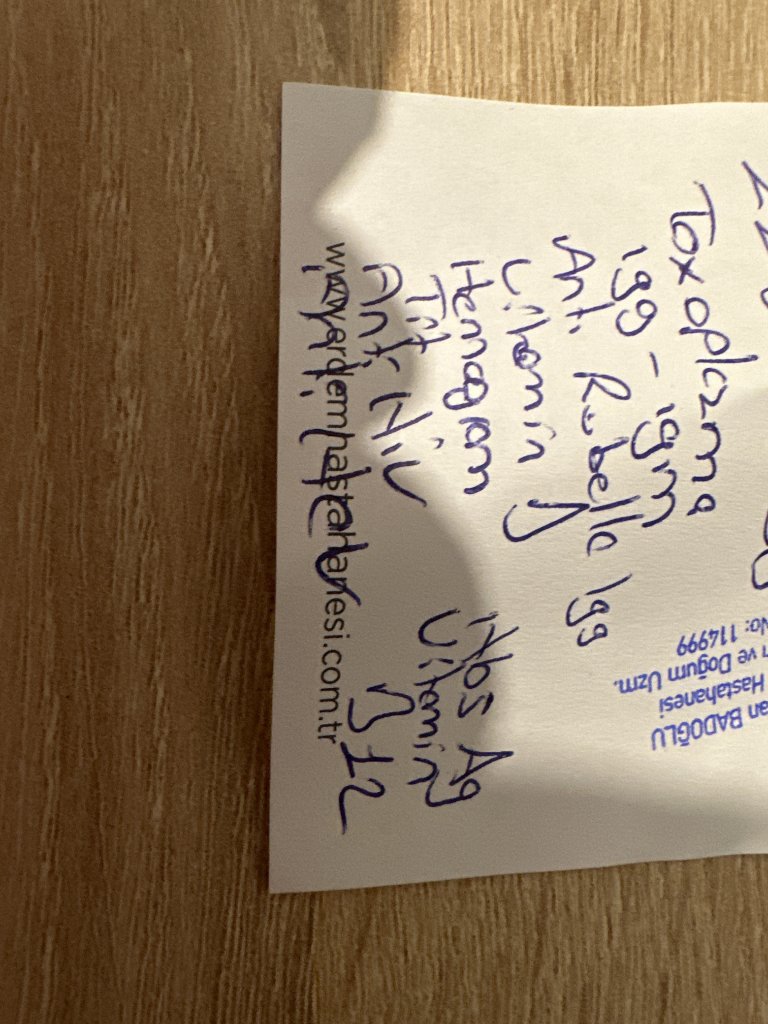 Toxoplazma
Igg - Igm
Anti Rubella Igg
Vitamin D
Hemogram
Hbs Ag
Tit
Vitamin
Anti Hiv
B12
Anti Hcv
www.erdemhastahanesi.com.tr
an BADOĞLU
Hastahanesi
ve Doğum Uzm.
No: 114999